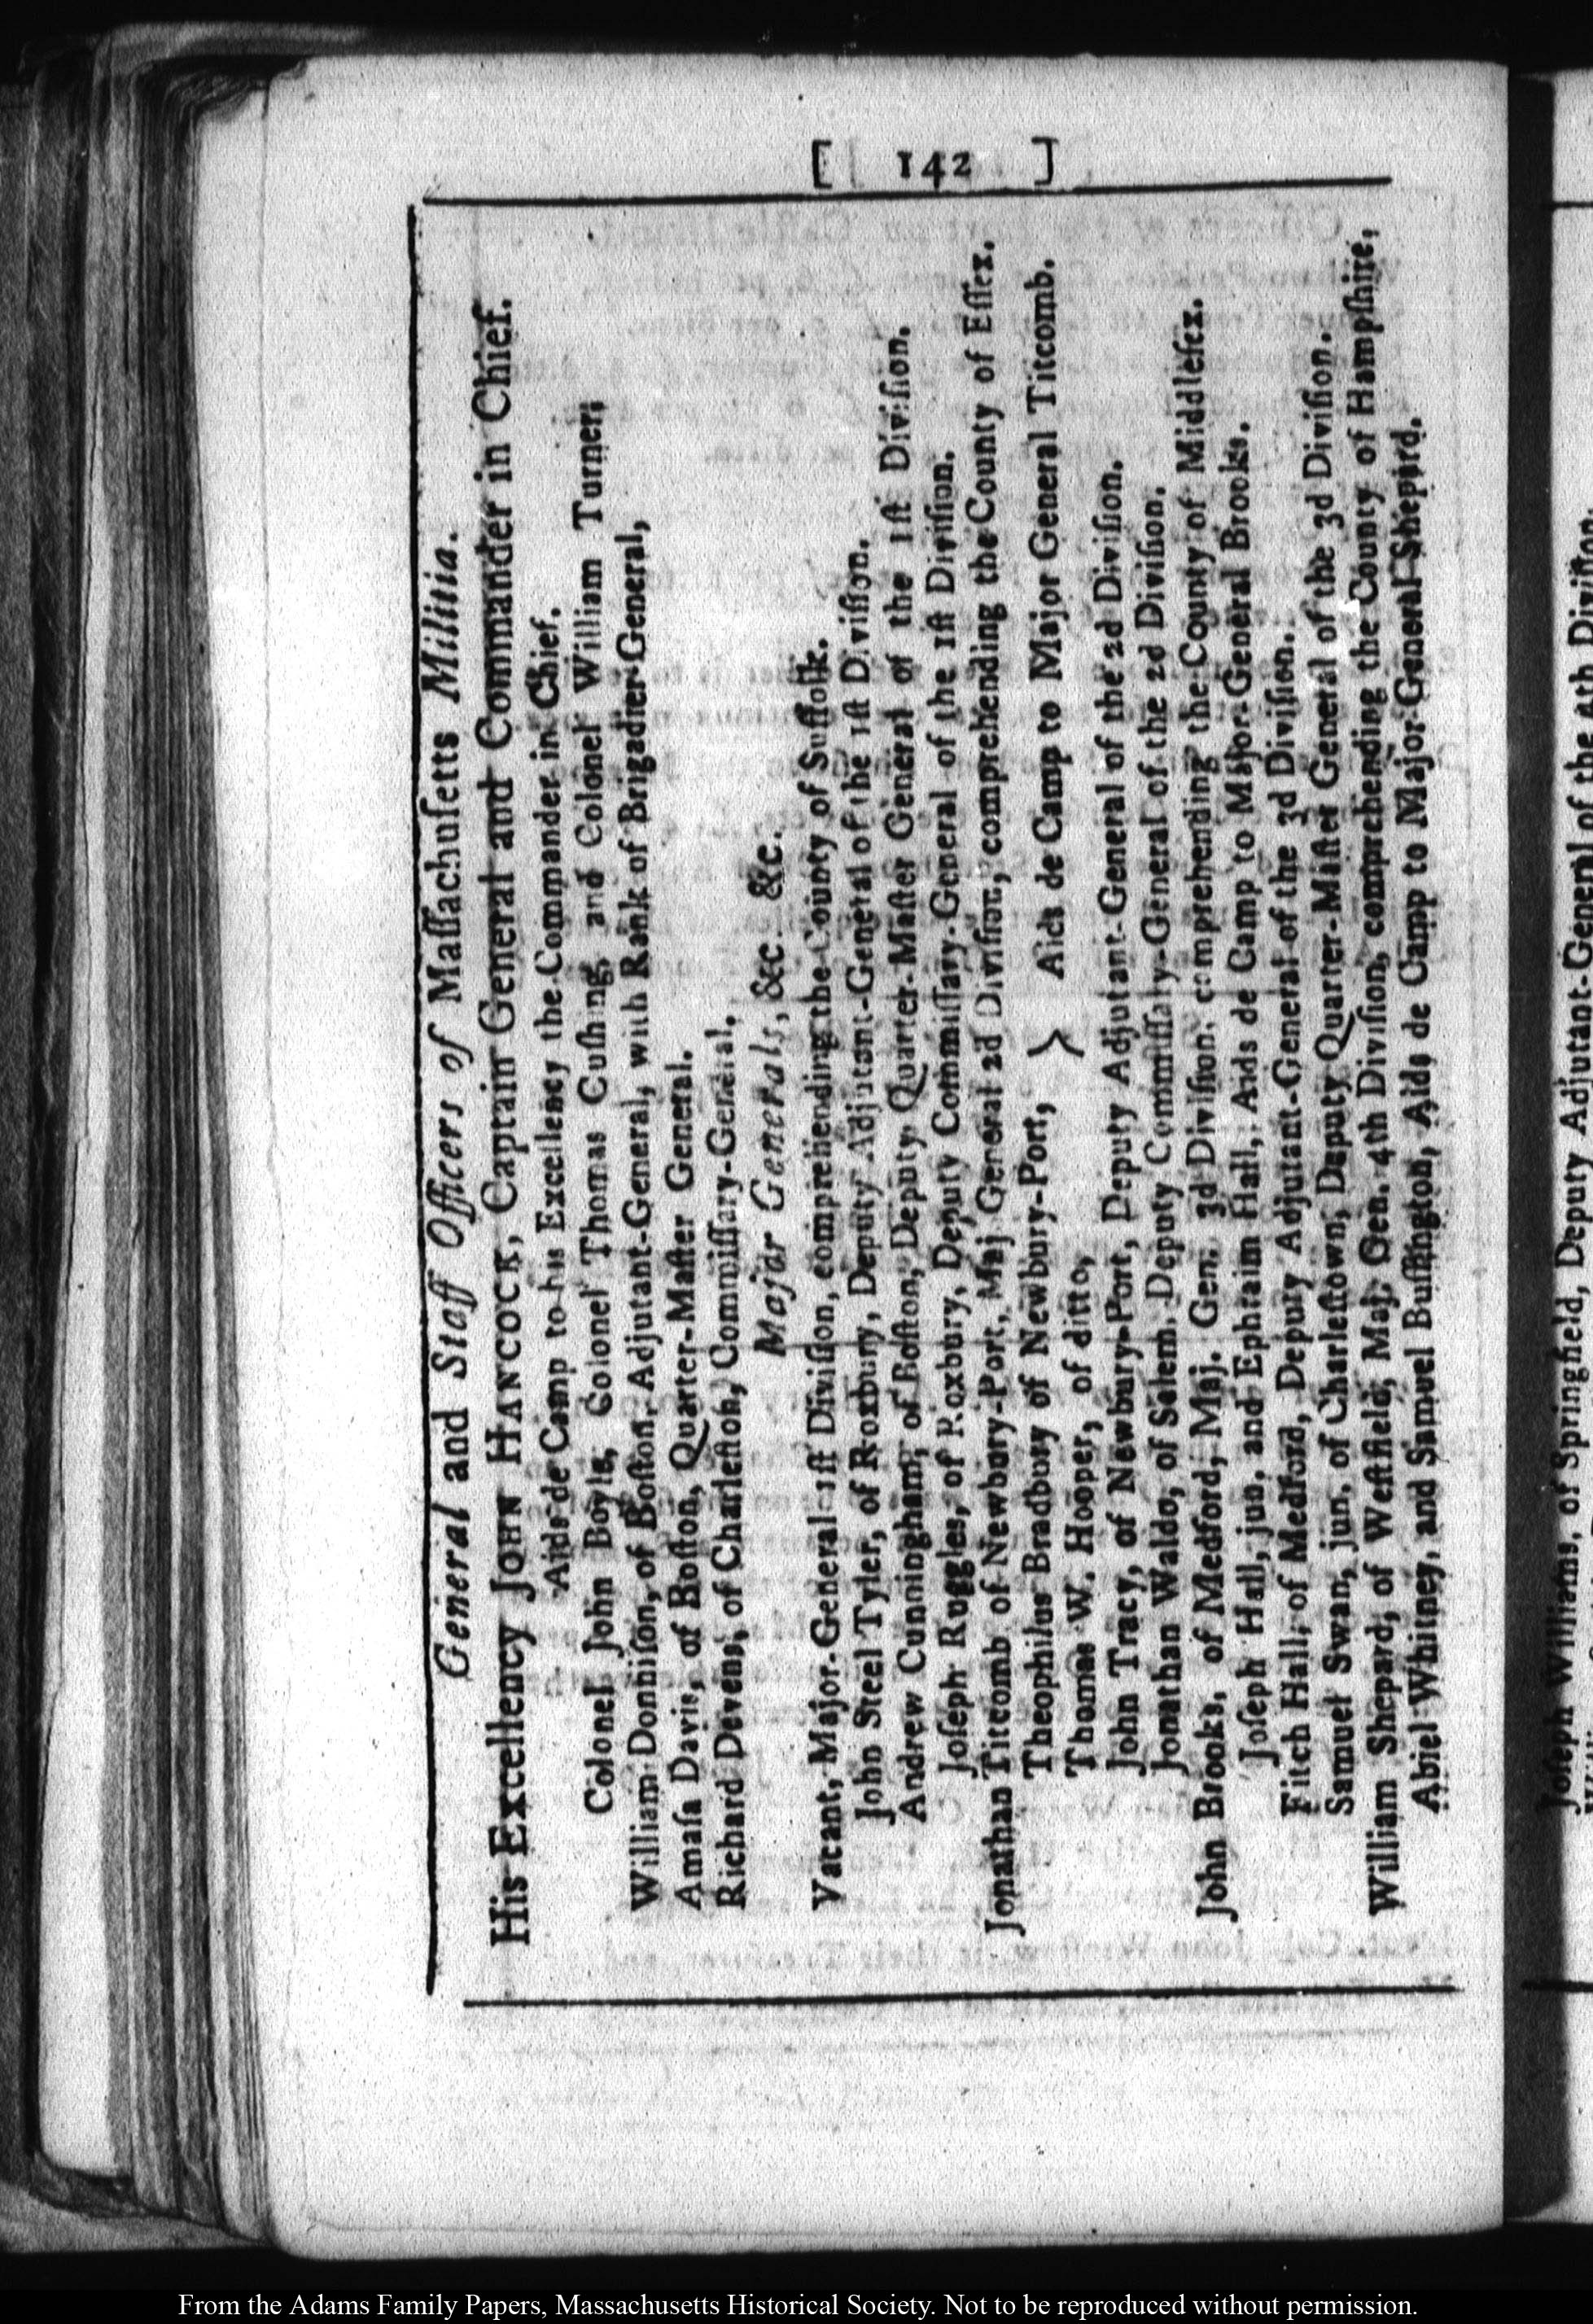 [ 142 ]
General and Staff Officers of Maſſachuſetts Militia.
His Excellency JOHN HANCOCK, Captain General and Commander in Chief.
Aids de Camp to his Excellency the Commander in Chief.
Colonel John Boyle, Colonel Thomas Cuſhing, and Colonel William Turner,
William Donniſon, of Boſton, Adjutant-General, with Rank of Brigadier-General,
Amaſa Davis, of Boſton, Quarter-Maſter General.
Richard Devens, of Charleſton, Commiſſary-General.
Major Generals, &c. &c. &c.
Vacant, Major-General 1ſt Diviſion, comprehending the County of Suffolk.
John Steel Tyler, of Roxbury, Deputy Adjutant-General of the 1ſt Diviſion.
Andrew Cunningham, of Boſton, Deputy Quarter-Maſter General of the 1ſt Diviſion.
Joſeph Ruggles, of Roxbury, Deputy Commiſſary-General of the 1ſt Diviſion.
Jonathan Titcomb of Newbury-Port, Maj General 2d Diviſion, comprehending the County of Eſſex.
Theophilus Bradbury of Newbury-Port, } Aids de Camp to Major General Titcomb.
Thomas W. Hooper, of ditto,
John Tracy, of Newbury-Port, Deputy Adjutant-General of the 2d Diviſion.
Jonathan Waldo, of Salem, Deputy Commiſſary-General of the 2d Diviſion.
John Brooks, of Medford, Maj. Gen. 3d Diviſion, comprehending the County of Middleſex.
Joſeph Hall, jun. and Ephraim Hall, Aids de Camp to Major-General Brooks.
Fitch Hall, of Medford, Deputy Adjutant-General of the 3d Diviſion.
Samuel Swan, jun. of Charleſtown, Deputy Quarter-Maſter General of the 3d Diviſion.
William Shepard, of Weſtfield, Maj. Gen. 4th Diviſion, comprehending the County of Hampſhire,
Abiel Whitney, and Samuel Buffington, Aids de Camp to Major-General Shepard.
Joſeph Williams, of Springfield, Deputy Adjutant-General of the 4th Diviſion.
From the Adams Family Papers, Massachusetts Historical Society. Not to be reproduced without permission.